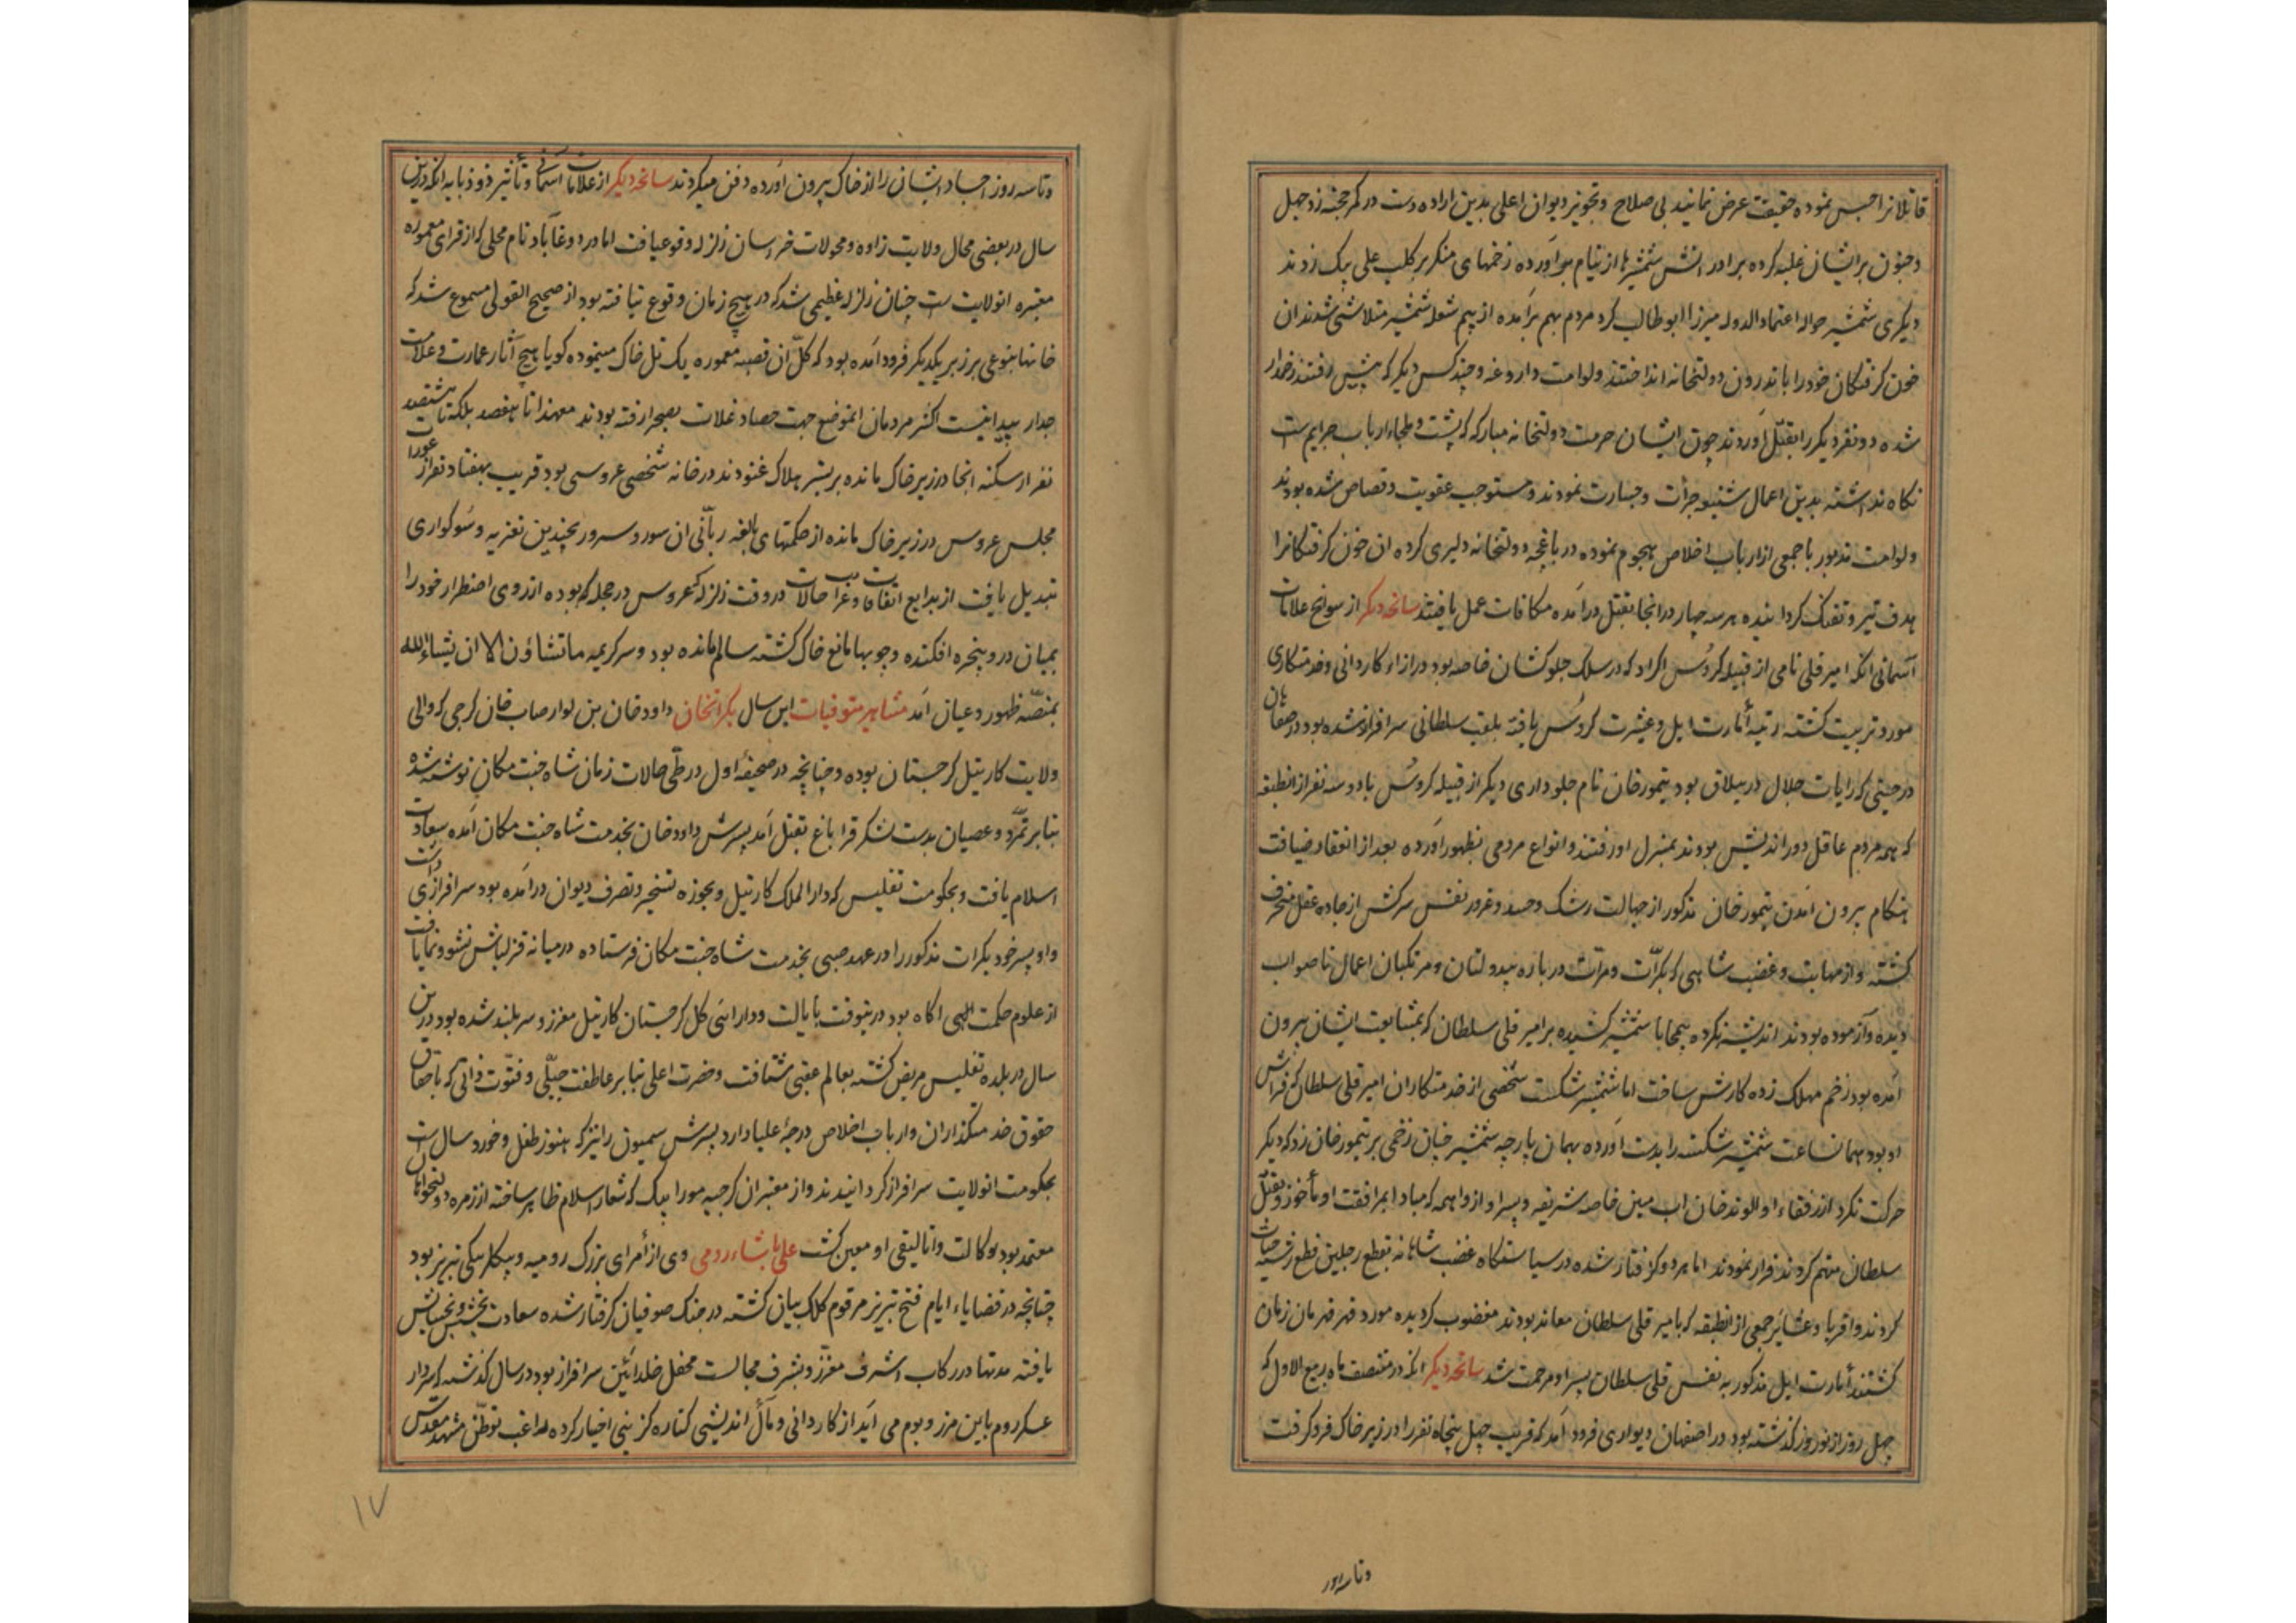 قاتلانرا حبس نموده حقیقت عرض نمایند بی صلاح و تجویز دیوان اعلی بدین اراده دست در کمر حجته زد جهل
و جنون بر ایشان غلبه کرده برادرانش شمشیرها از نیام برآورده زخمهای منکر بر کلب علی بیک زدند
دیگری شمشیر حواله اعتماد الدوله میرزا ابوطالب کرد مردم بهم برآمده از بیم شعله شمشیر متلاشی شدند ان
خون گرفتگان خود را باندرون دولتخانه انداختند ولوامت داروغه و چند کس دیگر که پیش رفتند زخمدار
شده دو نفر دیگر را بقتل آوردند چون ایشان حرمت دولتخانه مبارکه که پشت و ملجاء ارباب جرایم است
نگاه نداشته بدین اعمال شنیعه جرأت و جسارت نمودند و مستوجب عقوبت و قصاص شده بودند
ولوامت مذبور با جمعی از ارباب اخلاص هجوم نموده در باغچه دولتخانه دلیری کرده ان خون گرفتگانرا
هدف تیر و تفنک گردانیده هر سه چهار در انجا بقتل درآمده مکافات عمل یافتند سانحه دیگر از سوانح علامات
آسمانی انکه امیر قلی نامی از قبیله کروس اکراد که در سلک جلوکشان خاصه بود در ازاء کاردانی و خدمتکاری
مورد تربیت گشته رتبه أمارت ایل و عشیرت کروس یافته بلقب سلطانی سرافراز شده بود در صفاهان
در حینی که رایات جلال در ییلاق بود تیمور خان نام جلوداری دیگر از قبیله کروس با دو سه نفر از انطبقه
که همه مردم عاقل دوراندیش بودند بمنزل او رفتند و انواع مردمی بظهور آورده بعد از انعقاد ضیافت
هنکام بیرون آمدن تیمور خان مذکور از جهالت رشک و حسد و غرور نفس سرکش از جاده عقل منحرف
گشته و از مهابت و غضب شاهی که بکرّات و مرّات در باره بیدولتان و مرتکبان اعمال ناصواب
دیده و آزموده بودند اندیشه نکرده بیمحابا شمشیر کشیده بر امیر قلی سلطان که بمشایعت ایشان بیرون
آمده بود زخم مهلک زده کارش ساخت اما شمشیر شکست شخصی از خدمتکاران امیر قلی سلطان که فراش
او بود همانساعت شمشیر شکسته را بدست آورده بهمان پارچه شمشیر چنان زخمی بر تیمور خان زد که دیگر
حرکت نکرد از رفقاء او الوند خان اب مین خاصه شریفه و پسر او از واهمه که مبادا بمرافقت او مأخوذ و بقتل
سلطان متهم کردند فرار نمودند اما هر دو گرفتار شده در سیاستگاه غضب شاهانه بقطع رجلین قطع رشته حیات
کردند و اقربا و عشایر جمعی از انطبقه که با میر قلی سلطان معاند بودند مغضوب کردیده مورد قهر قهرمان زمان
گشتند أمارت ایل مذکور به نفس قلی سلطان پسر او مرحمت شد سانحه دیگر انکه در منتصف ماه ربیع الاول که
چهل روز از نوروز گذشته بود در اصفهان دیواری فرود آمد که قریب چهل پنجاه نفر را در زیر خاک فرو گرفت
و تا سه روز
و تا سه روز اجساد ایشان را از خاک بیرون آورده دفن میکردند سانحه دیگر از علامات آسمانی و تأثیر ذو ذنابه انکه درین
سال در بعضی محال ولایت زاوه و محولات خراسان زلزله وقوع یافت اما در دوغاباد نام محلی که از قرای معموره
معتبره انولایت است چنان زلزله عظیمی شد که در هیچ زمان وقوع نیافته بود از صحیح القولی مسموع شد که
خانها بنوعی بر زبر یکدیگر فرود آمده بود که کلّ ان قصبه معموره یک تل خاک مینموده گویا هیچ آثار عمارت و علامت
جدار پیدا نیست اکثر مردمان انموضع جهت حصاد غلات بصحرا رفته بودند معهذا تا هفصد بلکه تا هشتصد
نفر از سکنه انجا در زیر خاک مانده بر بستر هلاک غنودند در خانه شخصی عروسی بود قریب بهفتاد نفر از عورات
مجلس عروس در زیر خاک مانده از حکمتهای بالغه ربّانی ان سور و سرور بچندین تعزیه و سوگواری
تبدیل یافت از بدایع اتفاقات و غرایب حالات در وقت زلزله که عروس در حجله گه بوده از روی اضطرار خود را
بمیان در و پنجره افکنده و چوبها مانع خاک گشته سالم مانده بود و سر کریمه ما تشاؤن الا ان یشاء الله
بمنصّه ظهور و عیان آمد مشاهیر متوفیات این سال بکراتخان داود خان بن لوارصاب خان گرجی که والی
ولایت کارتیل گرجستان بوده و چنانچه در صحیفه اول در طی حالات زمان شاه جنت مکان نوشته شده
بنابر تمرّد و عصیان بدست لشکر قراباغ بقتل آمد پسرش داود خان بخدمت شاه جنت مکان آمده سعادت
اسلام یافت و بحکومت تفلیس که دار الملک کارتیل و بحوزه تسخیر و تصرف دیوان درآمده بود سرافرازی داشت
و او پسر خود بکرات مذکور را در عهد صبی بخدمت شاه جنت مکان فرستاده در میانه قزلباش نشو و نما یافت
از علوم حکمت الهی اگاه بود درینوقت بایالت و دارائی کل گرجستان کارتیل معزز و سربلند شده بود درین
سال در بلده تفلیس مریض گشته بعالم عقبی شتافت و حضرت اعلی بنابر عاطفت جبلّی و فتوّت ذاتی که با حقان
حقوق خدمتگذاران و ارباب اخلاص درجه علیا دارد پسرش سمیون را نیز که هنوز طفل و خورد سال است
بحکومت انولایت سرافراز گردانیدند و از معتبران گرجیه مورا بیک که شعار اسلام ظاهر ساخته از زمره دولتخواهان
معتمد بود بوکالت و اتالیقی او معین گشت علی پاشاء رومی وی از أمرای بزرک رومیه و بیکلربیکی تبریز بود
چنانچه در قضایاء ایام فتح تبریز مرقوم کلک بیان گشته در جنک صوفیان گرفتار شده سعادت بخشش و بخشایش
یافته مدتها در رکاب اشرف معزّز و بشرف مجالست محفل خلد آئین سرافراز بود در سال گذشته که سردار
عسکر روم باین مرز و بوم می آید از کاردانی و مآل اندیشی کناره گزینی اختیار کرده راغب توطّن مشهد مقدس
۱۷